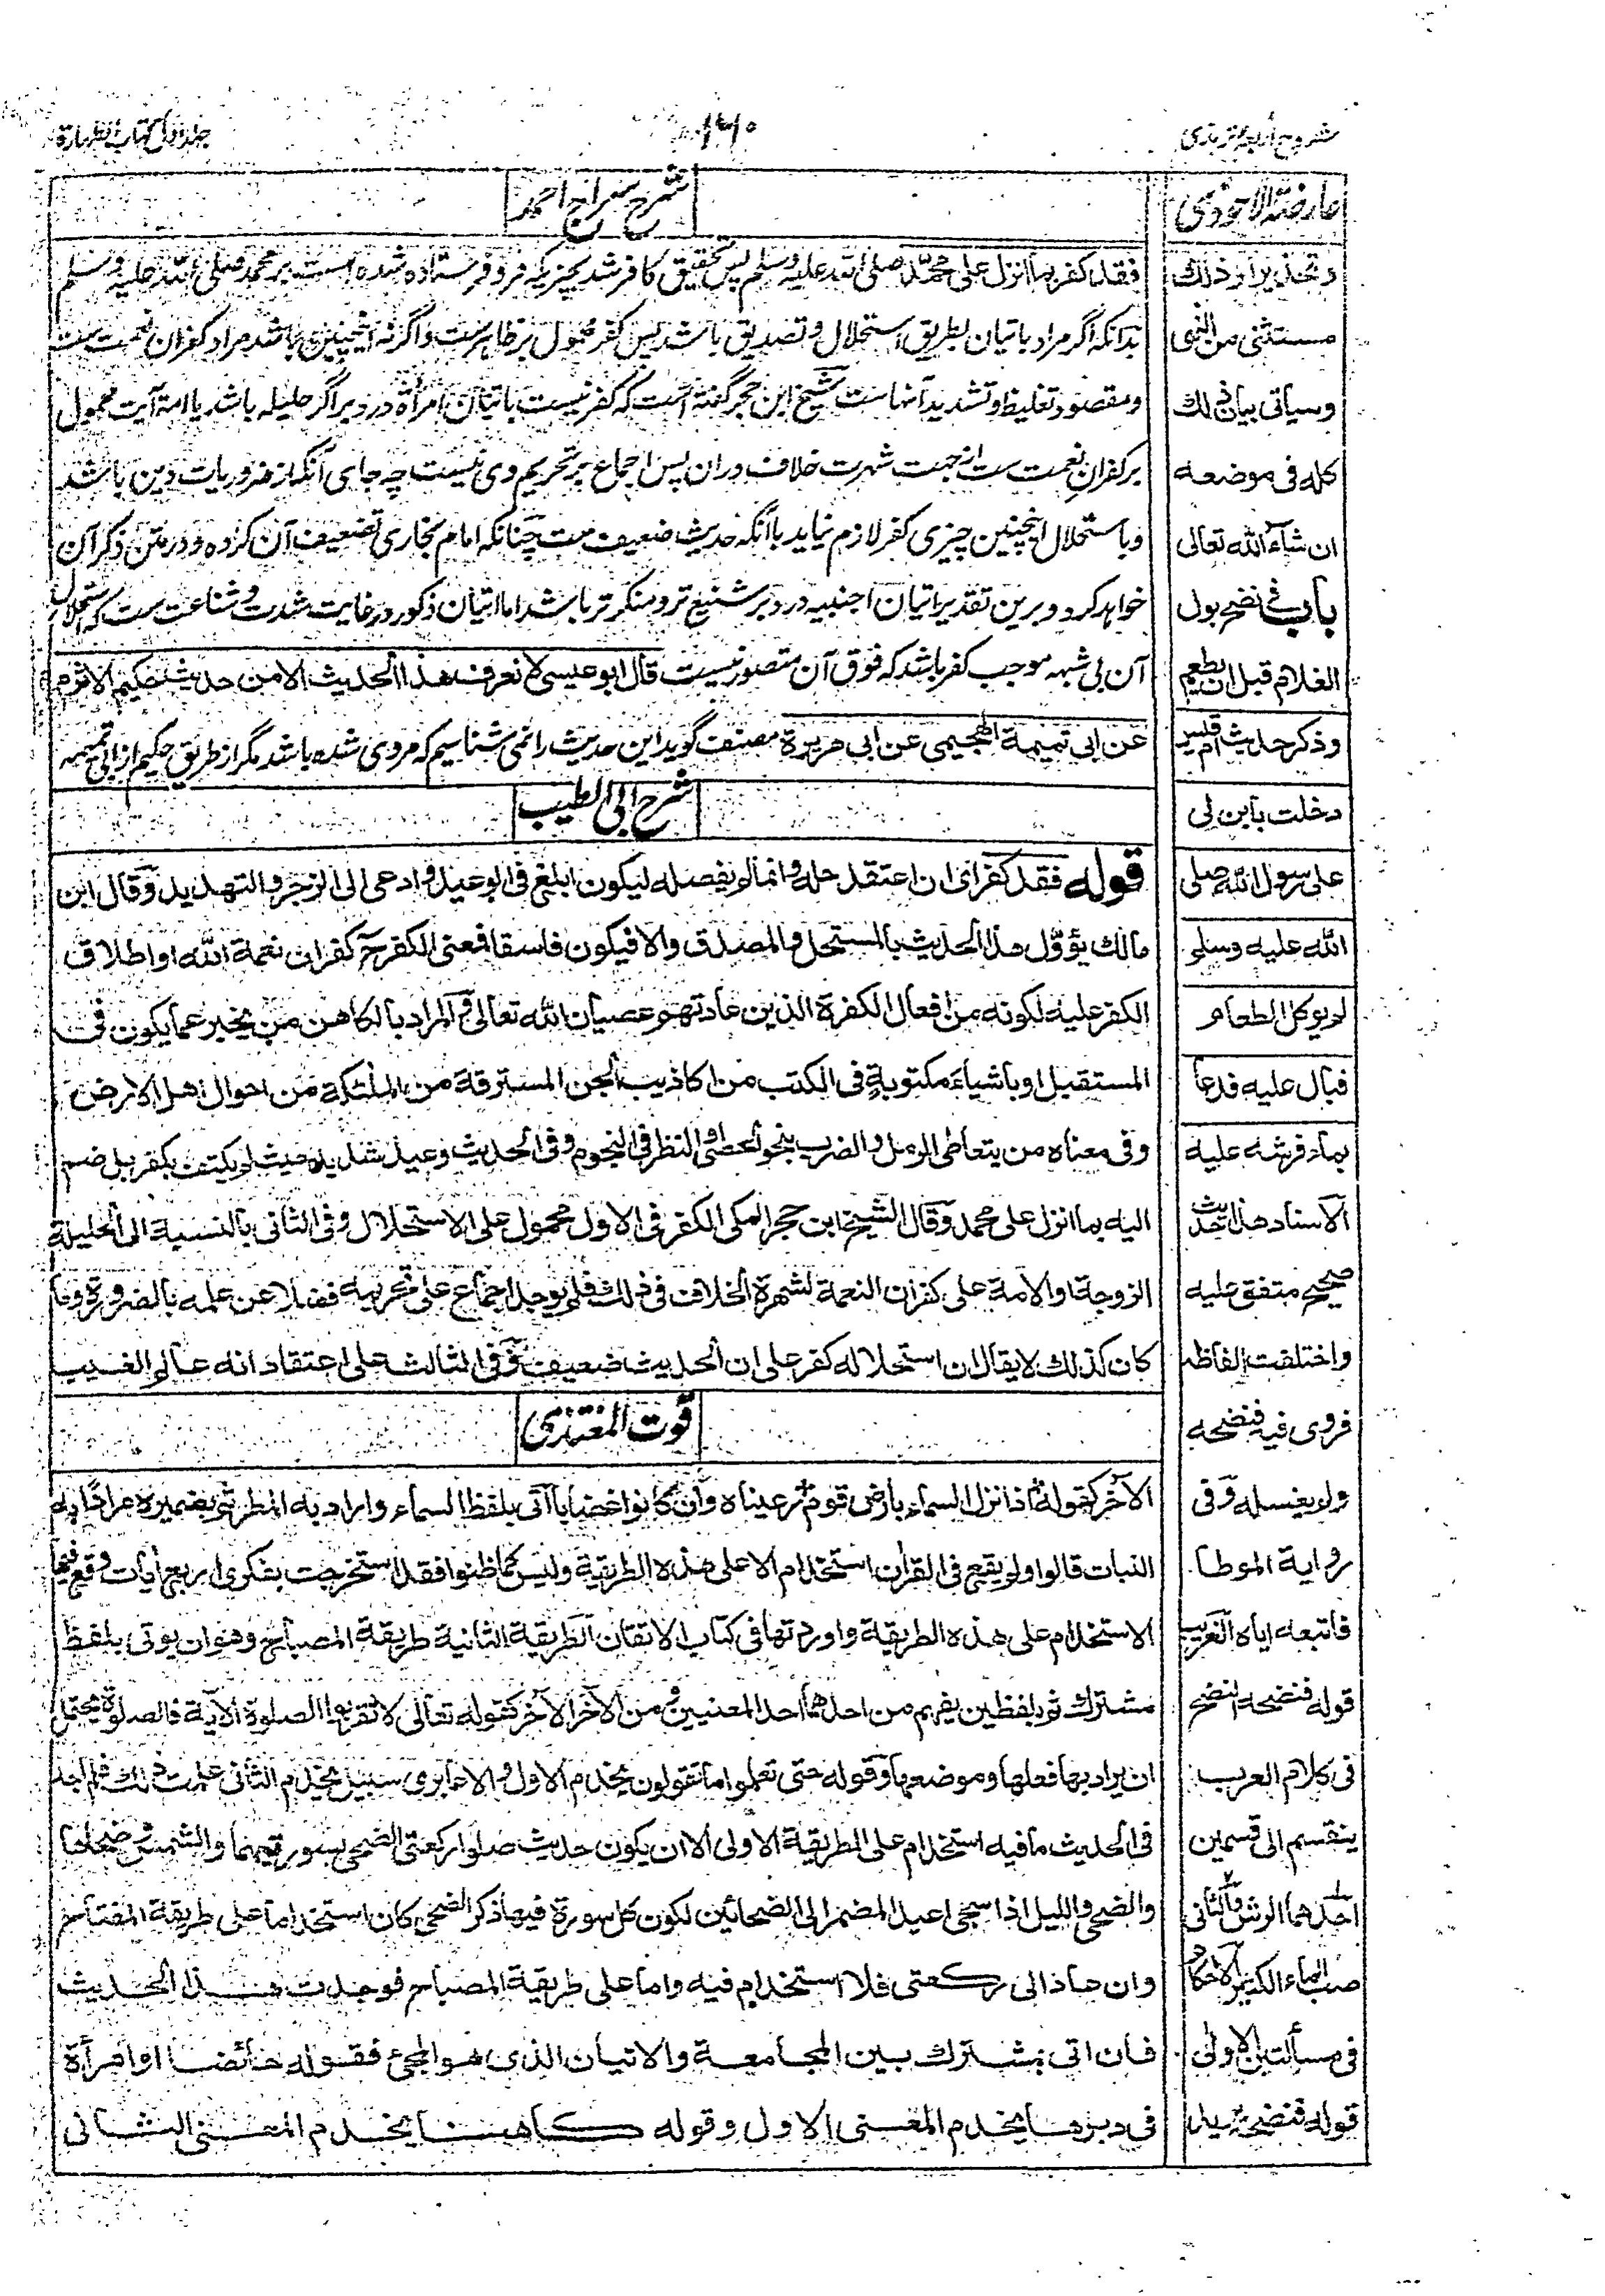 شروح اربعہ ترمذی
۱۶۰
جلد اول کتاب الطہارۃ
عارضۃ الاحوذی
وتحذیرا و ذلك
مستثنى من النهى
وسياتى بيان ذلك
كله فى موضعه
ان شاء الله تعالى
باب نضح بول
الغلام قبل ان يطعم
وذكر حديث ام قيس
دخلت بابن لى
على رسول الله صلى
الله عليه وسلم
لم يوكل الطعام
فبال عليه فدعا
بماء فرشه عليه
الاسناد هذا حديث
صحيح متفق عليه
واختلفت الفاظه
فروى فيه فنضحه
ولم يغسله وفى
رواية الموطا
فاتبعه اياه الغريب
قوله فنضحه النضح
فى كلام العرب
ينقسم الى قسمين
احدهما الرش والثانى
صب الماء الكثير الاحكام
فى مسألتين الاولى
قوله فنضحه يريد
شرح سراج احمد
فقد كفر بما انزل على محمد صلى الله عليه وسلم پس تحقیق کافر شد بچیزیکہ فرو فرستادہ شدہ است بر محمد صلی اللہ علیہ وسلم
بدانکہ اگر مراد باتیان بطریق استحلال و تصدیق باشد پس کفر محمول بر ظاہرست واگر نہ اینچنین باشد مراد کفران نعمت ست
ومقصود تغلیظ و تشدید آنہاست شیخ ابن حجر گفتہ است کہ کفر نیست باتیان امرأۃ در دبر اگر حلیلہ باشد یا امۃ آیت محمول
بر کفران نعمت ست از جہت شہرت خلاف دران پس اجماع بر تحریم وی نیست چہ جای آنکہ از ضروریات دین باشد
وباستحلال اینچنین چیزی کفر لازم نیاید با آنکہ حدیث ضعیف ست چنانکہ امام بخاری تضعیف آن کردہ ودر متن ذکر آن
خواہد کرد وبرین تقدیر اتیان اجنبیہ در دبر شنیع تر ومنکر تر باشد اما اتیان ذکور در غایت شدت وشناعت ست کہ استحلال
آن بی شبہہ موجب کفر باشد کہ فوق آن متصور نیست قال ابو عيسى لا نعرف هذا الحديث الا من حديث حكيم الاثرم
عن ابى تميمة الهجيمى عن ابى هريرة مصنف گوید این حدیث را نمی شناسیم کہ مروی شدہ باشد مگر از طریق حکیم از ابی تمیمہ
شرح ابى الطيب
قوله فقد كفر اى ان اعتقد حله وانما لم يفصله ليكون ابلغ فى الوعيد وادعى الى الزجر والتهديد وقال ابن
مالك يؤوّل هذا الحديث بالمستحل والمصدق والا فيكون فاسقا فمعنى الكفر ح كفران نعمة الله او اطلاق
الكفر عليه لكونه من افعال الكفرة الذين عادتهم عصيان الله تعالى والمراد بالكاهن من يخبر عما يكون فى
المستقبل او باشياء مكتوبة فى الكتب من اكاذيب الجن المسترقة من الملئكة من احوال اهل الارض
وفى معناه من يتعاطى الرمل والضرب بنحو الحصى والنظر فى النجوم وفى الحديث وعيد شديد حيث لم يكتف بكفر بل ضم
اليه بما انزل على محمد وقال الشيخ ابن حجر المكى الكفر فى الاول محمول على الاستحلال وفى الثانى بالنسبة الى الحليلة
الزوجة او الامة على كفران النعمة لشهرة الخلاف فى ذلك فلم يوجد اجماع على تحريمه فضلا عن علمه بالضرورة وما
كان كذلك لا يقال ان استحلاله كفر على ان الحديث ضعيف وفى الثالث على اعتقاد انه عالم الغيب
قوت المغتذى
الآخر كقوله اذا نزل السماء بارض قوم رعيناه وان كانوا غضابا اتى بلفظ السماء واراد به المطر ثم بضميره مرادا به
النبات قالوا ولم يقع فى القران استخدام الا على هذه الطريقة وليس كما ظنوا فقد استخرجت بفكرى اربع آيات وقع فيها
الاستخدام على هذه الطريقة واوردتها فى كتاب الاتقان الطريقة الثانية طريقة المصباح وهو ان يوتى بلفظ
مشترك ثم بلفظين يفهم من احدهما احد المعنيين ومن الآخر الآخر كقوله تعالى لا تقربوا الصلوة الآية فالصلوة يحتمل
ان يراد بها فعلها وموضعها وقوله حتى تعلموا ما تقولون يخدم الاول والا عابرى سبيل يخدم الثانى علمت ذلك فلم اجد
فى الحديث ما فيه استخدام على الطريقة الاولى الا ان يكون حديث صلوا ركعتى الضحى بسورتيهما والشمس وضحاها
والضحى والليل اذا سجى اعيد المضمر الى الضحائين لكون كل سورة فيها ذكر الضحى كان استخداما على طريقة المفتاح
وان عاد الى ركعتى فلا استخدام فيه واما على طريقة المصباح فوجدت هذا الحديث
فان اتى مشترك بين المجامعة والاتيان الذى هو المجئ فقوله حائضا او امرأة
فى دبرها يخدم المعنى الاول وقوله كاهنا يخدم المعنى الثانى